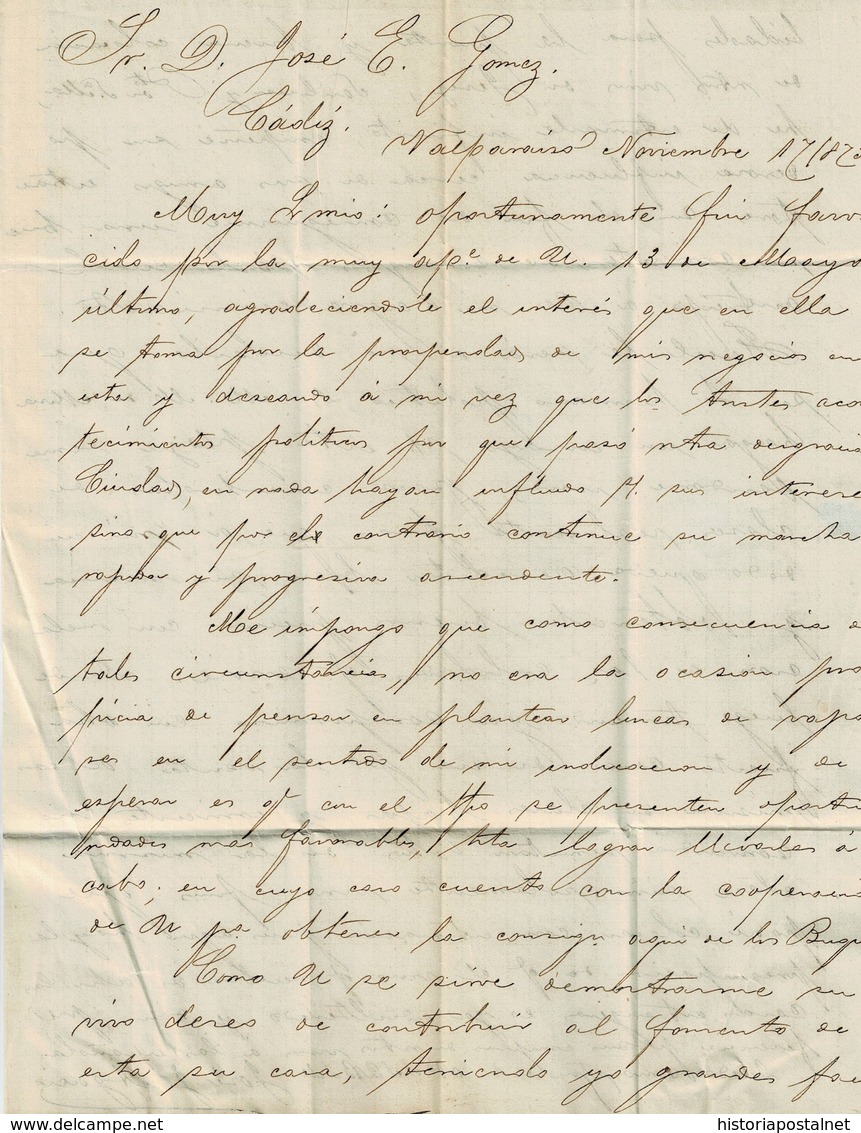 Sr. D. José E. Gomez.
Cádiz.
Valparaiso Noviembre 17/873
Muy Sr mio: oportunamente fui favore
cido por la muy apc.e de U. 13 de Mayo
último, agradeciendole el interés que en ella
se toma por la prosperidad de mis negocios en
esta y deseando á mi vez que los tristes acon
tecimientos politicos por que pasó ntra desgracia
Ciudad, en nada hayan influido á sus interese
sino que por el contrario continue su marcha
rapida y progresiva ascendente.
Me impongo que como consecuencia de
tales circunstancias, no era la ocasion pro
picia de pensar en plantear lineas de vapo
res en el sentido de mi indicacion y de
esperar es qe con el tpo se presenten oportu
nidades mas favorables, hta lograr llevarlas á
cabo; en cuyo caso cuento con la cooperacio
de U pa obtener la consign. aqui de los Buqu
Como U se sirve demostrarme su
vivo deseo de contribuir al fomento de
esta su casa, teniendo yo grandes fac
historiapostalnet